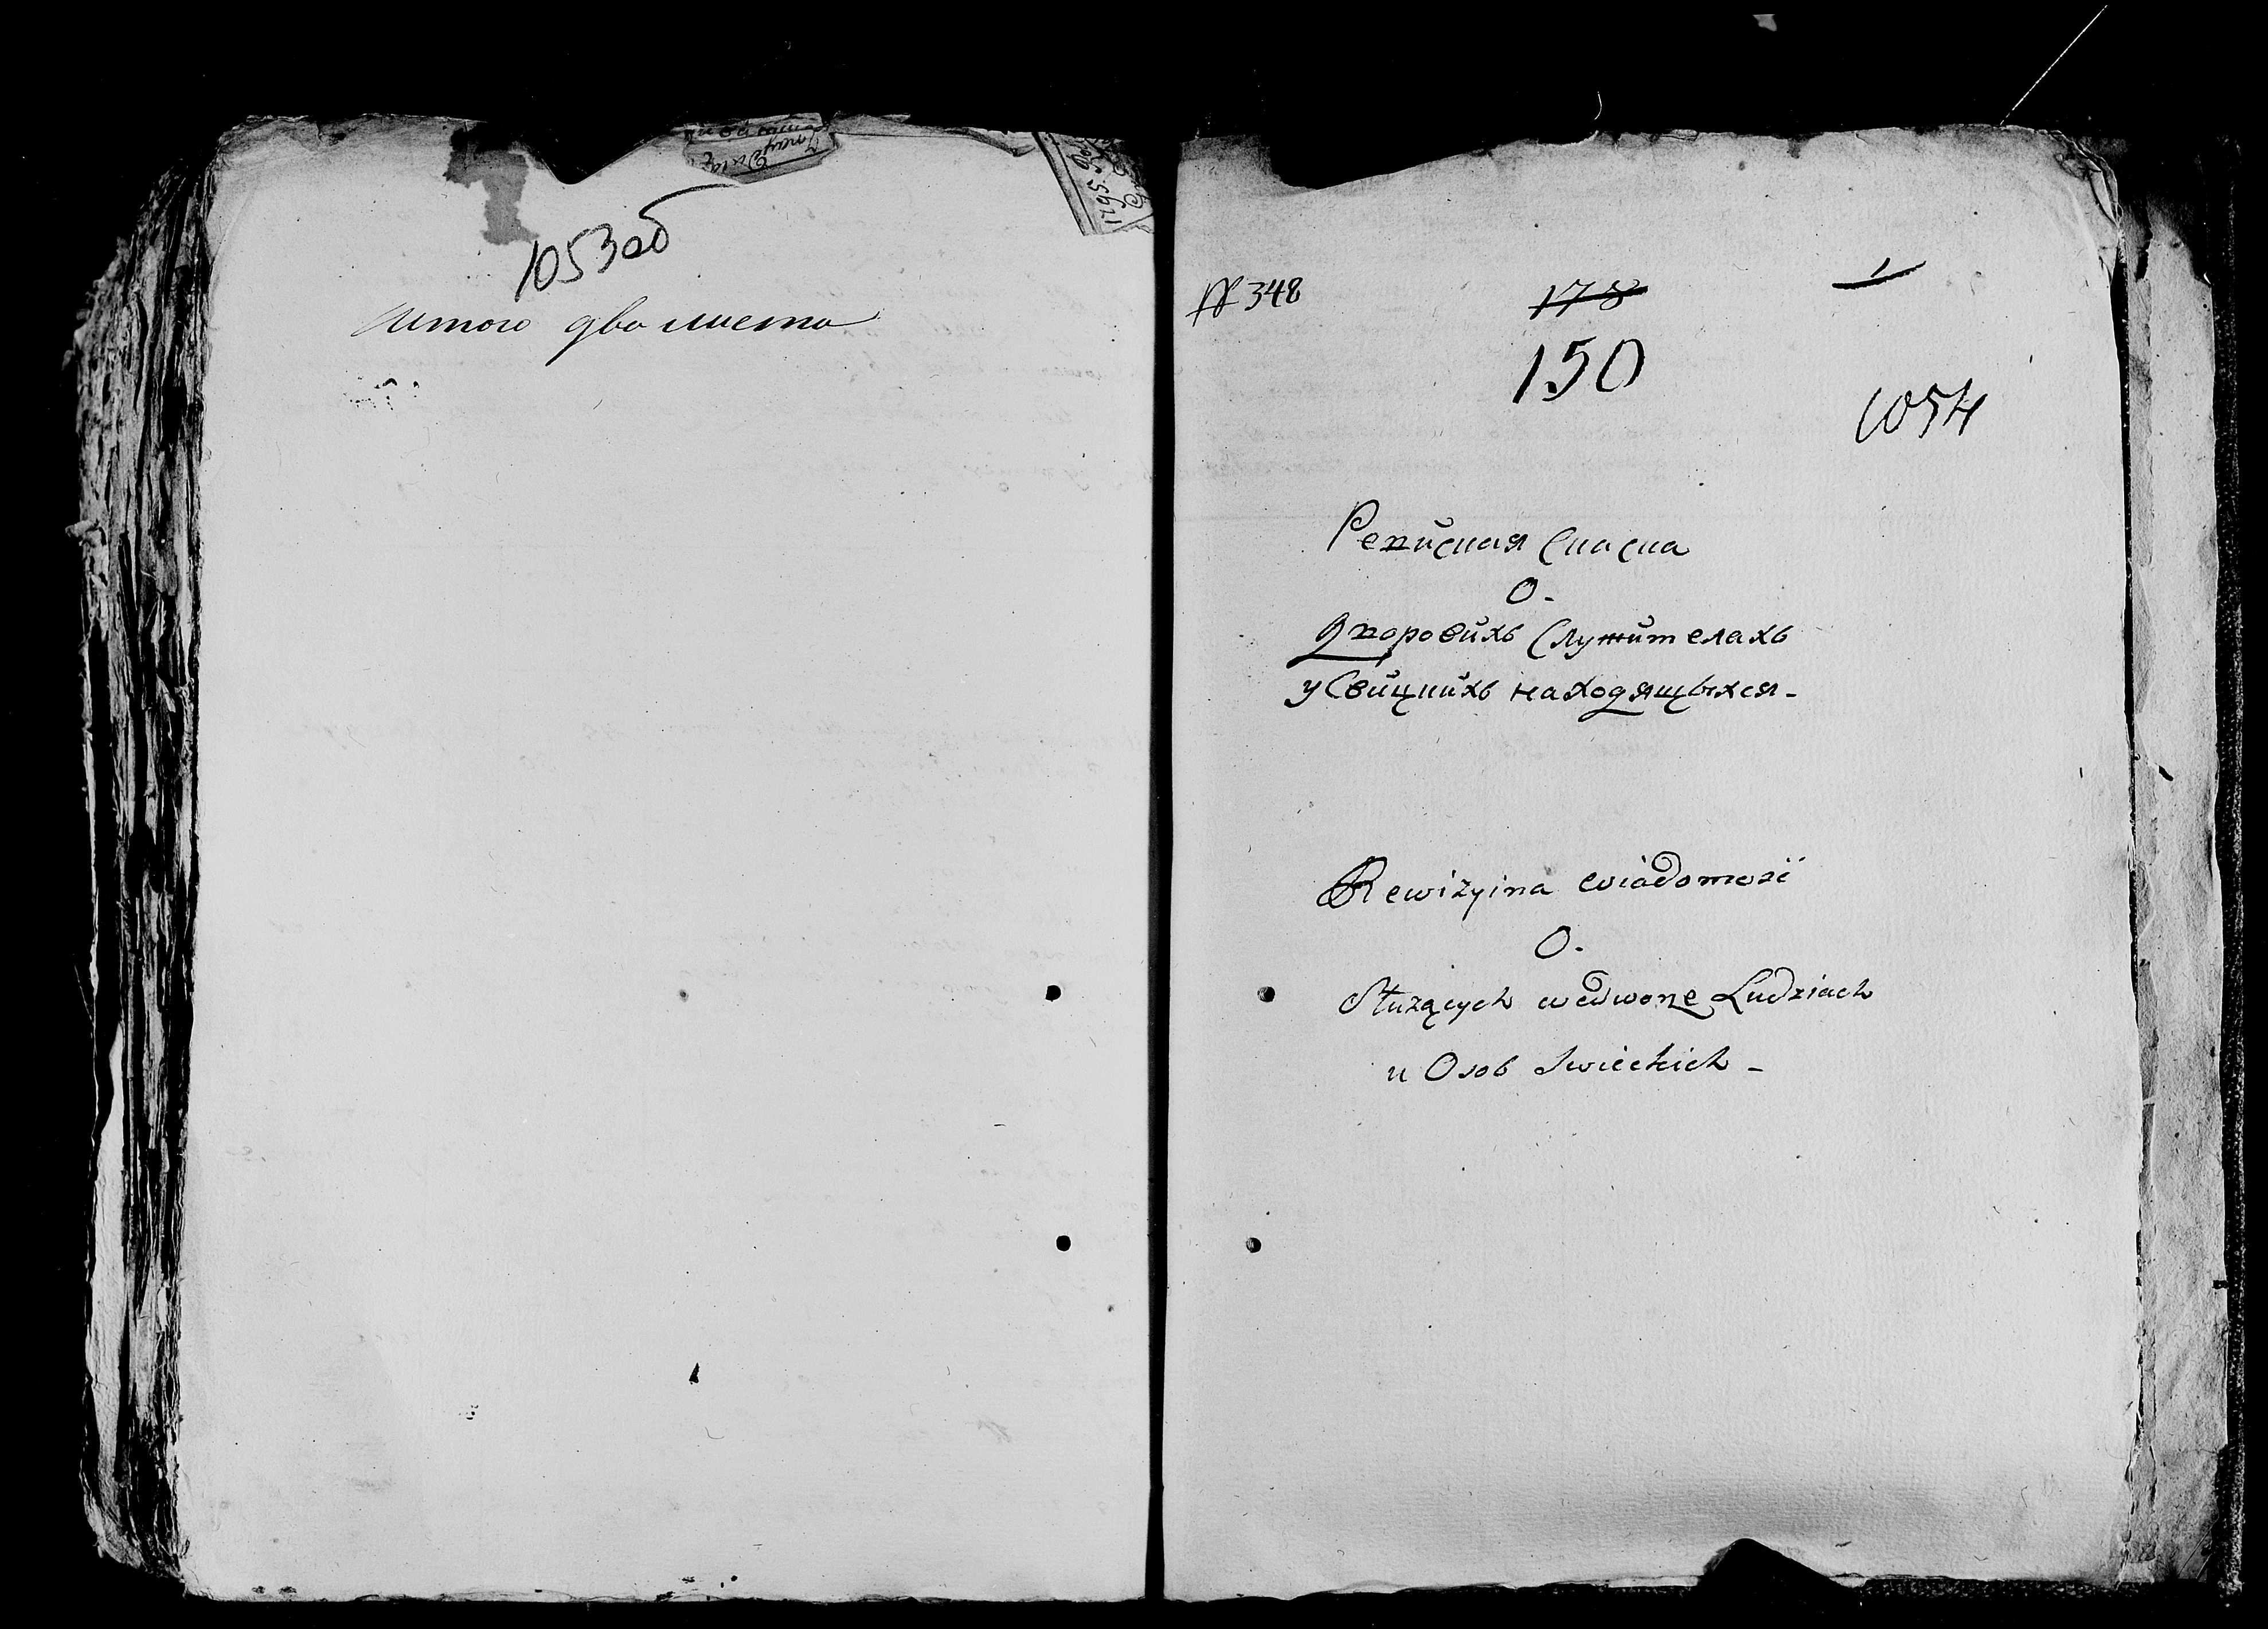 1053 об
Итого два листа
1795
№ 348
178
1
150
1054
Ревизская Сказка
О.
Дворовихъ Служителахъ
у Свицкихъ находящыхся -
Rewizyina wiadomosć
O.
Służących we dworze Ludziach
u Osob Swieckich -